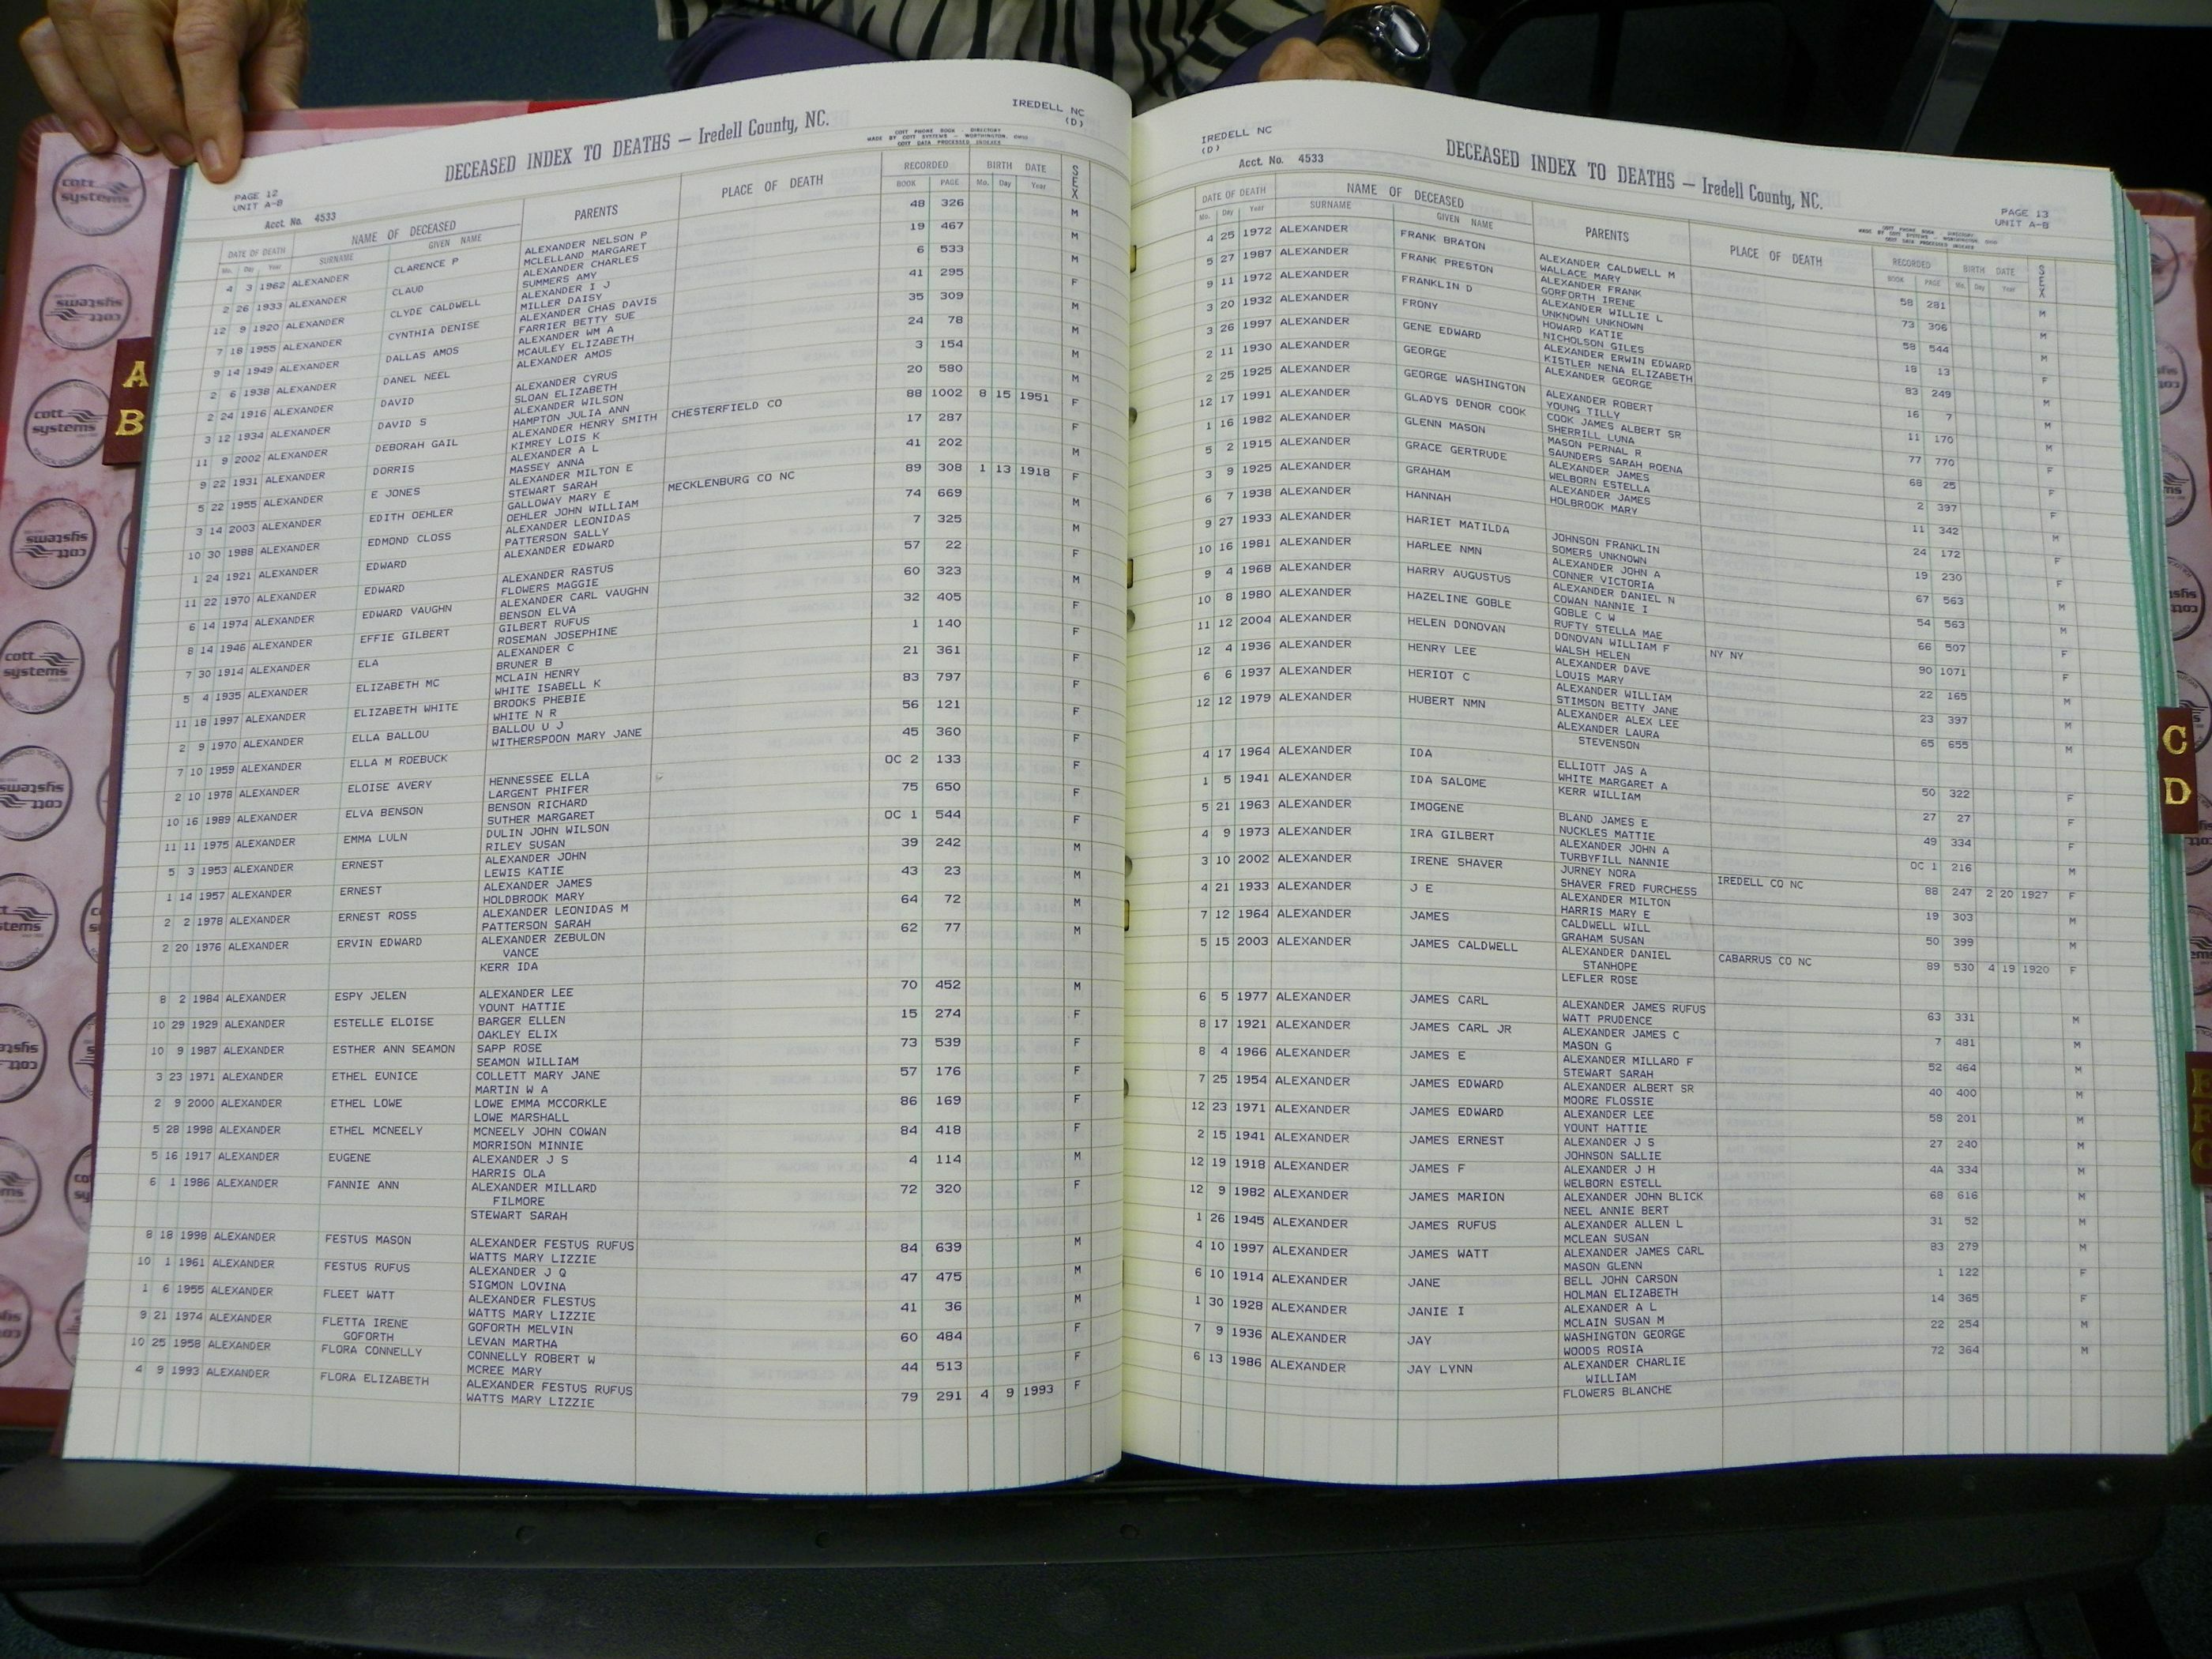 IREDELL NC
(D)
DECEASED INDEX TO DEATHS — Iredell County, NC.
COTT PHONE BOOK - DIRECTORY
MADE BY COTT SYSTEMS — WORTHINGTON, OHIO
COTT DATA PROCESSED INDEXES
PAGE 12
UNIT A-B
Acct. No. 4533
DATE OF DEATH NAME OF DECEASED PARENTS PLACE OF DEATH RECORDED BIRTH DATE SEX
Mo. Day Year SURNAME GIVEN NAME BOOK PAGE Mo. Day Year
4 3 1962 ALEXANDER CLARENCE P ALEXANDER NELSON P 48 326 M
MCLELLAND MARGARET
2 26 1933 ALEXANDER CLAUD ALEXANDER CHARLES 19 467 M
SUMMERS AMY
12 9 1920 ALEXANDER CLYDE CALDWELL ALEXANDER I J 6 533 M
MILLER DAISY
7 18 1955 ALEXANDER CYNTHIA DENISE ALEXANDER CHAS DAVIS 41 295 F
FARRIER BETTY SUE
9 14 1949 ALEXANDER DALLAS AMOS ALEXANDER WM A 35 309 M
MCAULEY ELIZABETH
2 6 1938 ALEXANDER DANEL NEEL ALEXANDER AMOS 24 78 M
2 24 1916 ALEXANDER DAVID ALEXANDER CYRUS 3 154 M
SLOAN ELIZABETH
3 12 1934 ALEXANDER DAVID S ALEXANDER WILSON 20 580 M
HAMPTON JULIA ANN
11 9 2002 ALEXANDER DEBORAH GAIL ALEXANDER HENRY SMITH CHESTERFIELD CO 88 1002 8 15 1951 F
KIMREY LOIS K
9 22 1931 ALEXANDER DORRIS ALEXANDER A L 17 287 F
MASSEY ANNA
5 22 1955 ALEXANDER E JONES ALEXANDER MILTON E 41 202 M
STEWART SARAH
3 14 2003 ALEXANDER EDITH OEHLER GALLOWAY MARY E MECKLENBURG CO NC 89 308 1 13 1918 F
OEHLER JOHN WILLIAM
10 30 1988 ALEXANDER EDMOND CLOSS ALEXANDER LEONIDAS 74 669 M
PATTERSON SALLY
1 24 1921 ALEXANDER EDWARD ALEXANDER EDWARD 7 325 M
11 22 1970 ALEXANDER EDWARD ALEXANDER RASTUS 57 22 F
FLOWERS MAGGIE
6 14 1974 ALEXANDER EDWARD VAUGHN ALEXANDER CARL VAUGHN 60 323 M
BENSON ELVA
8 14 1946 ALEXANDER EFFIE GILBERT GILBERT RUFUS 32 405 F
ROSEMAN JOSEPHINE
7 30 1914 ALEXANDER ELA ALEXANDER C 1 140 F
BRUNER B
5 4 1935 ALEXANDER ELIZABETH MC MCLAIN HENRY 21 361 F
WHITE ISABELL K
11 18 1997 ALEXANDER ELIZABETH WHITE BROOKS PHEBIE 83 797 F
WHITE N R
2 9 1970 ALEXANDER ELLA BALLOU BALLOU U J 56 121 F
WITHERSPOON MARY JANE
7 10 1959 ALEXANDER ELLA M ROEBUCK 45 360 F
2 10 1978 ALEXANDER ELOISE AVERY HENNESSEE ELLA OC 2 133 F
LARGENT PHIFER
10 16 1989 ALEXANDER ELVA BENSON BENSON RICHARD 75 650 F
SUTHER MARGARET
11 11 1975 ALEXANDER EMMA LULN DULIN JOHN WILSON OC 1 544 F
RILEY SUSAN
5 3 1953 ALEXANDER ERNEST ALEXANDER JOHN 39 242 M
LEWIS KATIE
1 14 1957 ALEXANDER ERNEST ALEXANDER JAMES 43 23 M
HOLDBROOK MARY
2 2 1978 ALEXANDER ERNEST ROSS ALEXANDER LEONIDAS M 64 72 M
PATTERSON SARAH
2 20 1976 ALEXANDER ERVIN EDWARD ALEXANDER ZEBULON 62 77 M
VANCE
KERR IDA
8 2 1984 ALEXANDER ESPY JELEN ALEXANDER LEE 70 452 M
YOUNT HATTIE
10 29 1929 ALEXANDER ESTELLE ELOISE BARGER ELLEN 15 274 F
OAKLEY ELIX
10 9 1987 ALEXANDER ESTHER ANN SEAMON SAPP ROSE 73 539 F
SEAMON WILLIAM
3 23 1971 ALEXANDER ETHEL EUNICE COLLETT MARY JANE 57 176 F
MARTIN W A
2 9 2000 ALEXANDER ETHEL LOWE LOWE EMMA MCCORKLE 86 169 F
LOWE MARSHALL
5 28 1998 ALEXANDER ETHEL MCNEELY MCNEELY JOHN COWAN 84 418 F
MORRISON MINNIE
5 16 1917 ALEXANDER EUGENE ALEXANDER J S 4 114 M
HARRIS OLA
6 1 1986 ALEXANDER FANNIE ANN ALEXANDER MILLARD 72 320 F
FILMORE
STEWART SARAH
8 18 1998 ALEXANDER FESTUS MASON ALEXANDER FESTUS RUFUS 84 639 M
WATTS MARY LIZZIE
10 1 1961 ALEXANDER FESTUS RUFUS ALEXANDER J Q 47 475 M
SIGMON LOVINA
1 6 1955 ALEXANDER FLEET WATT ALEXANDER FLESTUS 41 36 M
WATTS MARY LIZZIE
9 21 1974 ALEXANDER FLETTA IRENE GOFORTH MELVIN 60 484 F
GOFORTH LEVAN MARTHA
10 25 1958 ALEXANDER FLORA CONNELLY CONNELLY ROBERT W 44 513 F
MCREE MARY
4 9 1993 ALEXANDER FLORA ELIZABETH ALEXANDER FESTUS RUFUS 79 291 4 9 1993 F
WATTS MARY LIZZIE
IREDELL NC
(D)
Acct. No. 4533
DECEASED INDEX TO DEATHS — Iredell County, NC.
COTT PHONE BOOK - DIRECTORY
MADE BY COTT SYSTEMS — WORTHINGTON, OHIO
COTT DATA PROCESSED INDEXES
PAGE 13
UNIT A-B
DATE OF DEATH NAME OF DECEASED PARENTS PLACE OF DEATH RECORDED BIRTH DATE SEX
Mo. Day Year SURNAME GIVEN NAME BOOK PAGE Mo. Day Year
4 25 1972 ALEXANDER FRANK BRATON ALEXANDER CALDWELL M 58 281 M
WALLACE MARY
5 27 1987 ALEXANDER FRANK PRESTON ALEXANDER FRANK 73 306 M
GORFORTH IRENE
9 11 1972 ALEXANDER FRANKLIN D ALEXANDER WILLIE L 58 544 M
UNKNOWN UNKNOWN
3 20 1932 ALEXANDER FRONY HOWARD KATIE 18 13 F
NICHOLSON GILES
3 26 1997 ALEXANDER GENE EDWARD ALEXANDER ERWIN EDWARD 83 249 M
KISTLER NENA ELIZABETH
2 11 1930 ALEXANDER GEORGE ALEXANDER GEORGE 16 7 M
2 25 1925 ALEXANDER GEORGE WASHINGTON ALEXANDER ROBERT 11 170 M
YOUNG TILLY
12 17 1991 ALEXANDER GLADYS DENOR COOK COOK JAMES ALBERT SR 77 770 F
SHERRILL LUNA
1 16 1982 ALEXANDER GLENN MASON MASON PERNAL R 68 25 F
SAUNDERS SARAH ROENA
5 2 1915 ALEXANDER GRACE GERTRUDE ALEXANDER JAMES 2 397 F
WELBORN ESTELLA
3 9 1925 ALEXANDER GRAHAM ALEXANDER JAMES 11 342 M
HOLBROOK MARY
6 7 1938 ALEXANDER HANNAH 24 172 F
9 27 1933 ALEXANDER HARIET MATILDA JOHNSON FRANKLIN 19 230 F
SOMERS UNKNOWN
10 16 1981 ALEXANDER HARLEE NMN ALEXANDER JOHN A 67 563 M
CONNER VICTORIA
9 4 1968 ALEXANDER HARRY AUGUSTUS ALEXANDER DANIEL N 54 563 M
COWAN NANNIE I
10 8 1980 ALEXANDER HAZELINE GOBLE GOBLE C W 66 507 F
RUFTY STELLA MAE
11 12 2004 ALEXANDER HELEN DONOVAN DONOVAN WILLIAM F NY NY 90 1071 F
WALSH HELEN
12 4 1936 ALEXANDER HENRY LEE ALEXANDER DAVE 22 165 M
LOUIS MARY
6 6 1937 ALEXANDER HERIOT C ALEXANDER WILLIAM 23 397 M
STIMSON BETTY JANE
12 12 1979 ALEXANDER HUBERT NMN ALEXANDER ALEX LEE 65 655 M
ALEXANDER LAURA
STEVENSON
4 17 1964 ALEXANDER IDA ELLIOTT JAS A 50 322 F
WHITE MARGARET A
1 5 1941 ALEXANDER IDA SALOME KERR WILLIAM 27 27 F
5 21 1963 ALEXANDER IMOGENE BLAND JAMES E 49 334 F
NUCKLES MATTIE
4 9 1973 ALEXANDER IRA GILBERT ALEXANDER JOHN A OC 1 216 M
TURBYFILL NANNIE
3 10 2002 ALEXANDER IRENE SHAVER JURNEY NORA IREDELL CO NC 88 247 2 20 1927 F
SHAVER FRED FURCHESS
4 21 1933 ALEXANDER J E ALEXANDER MILTON 19 303 M
HARRIS MARY E
7 12 1964 ALEXANDER JAMES CALDWELL WILL 50 399 M
GRAHAM SUSAN
5 15 2003 ALEXANDER JAMES CALDWELL ALEXANDER DANIEL CABARRUS CO NC 89 530 4 19 1920 F
STANHOPE
LEFLER ROSE
6 5 1977 ALEXANDER JAMES CARL ALEXANDER JAMES RUFUS 63 331 M
WATT PRUDENCE
8 17 1921 ALEXANDER JAMES CARL JR ALEXANDER JAMES C 7 481 M
MASON G
8 4 1966 ALEXANDER JAMES E ALEXANDER MILLARD F 52 464 M
STEWART SARAH
7 25 1954 ALEXANDER JAMES EDWARD ALEXANDER ALBERT SR 40 400 M
MOORE FLOSSIE
12 23 1971 ALEXANDER JAMES EDWARD ALEXANDER LEE 58 201 M
YOUNT HATTIE
2 15 1941 ALEXANDER JAMES ERNEST ALEXANDER J S 27 240 M
JOHNSON SALLIE
12 19 1918 ALEXANDER JAMES F ALEXANDER J H 4A 334 M
WELBORN ESTELL
12 9 1982 ALEXANDER JAMES MARION ALEXANDER JOHN BLICK 68 616 M
NEEL ANNIE BERT
1 26 1945 ALEXANDER JAMES RUFUS ALEXANDER ALLEN L 31 52 M
MCLEAN SUSAN
4 10 1997 ALEXANDER JAMES WATT ALEXANDER JAMES CARL 83 279 M
MASON GLENN
6 10 1914 ALEXANDER JANE BELL JOHN CARSON 1 122 F
HOLMAN ELIZABETH
1 30 1928 ALEXANDER JANIE I ALEXANDER A L 14 365 F
MCLAIN SUSAN M
7 9 1936 ALEXANDER JAY WASHINGTON GEORGE 22 254 M
WOODS ROSIA
6 13 1986 ALEXANDER JAY LYNN ALEXANDER CHARLIE 72 364 M
WILLIAM
FLOWERS BLANCHE
A
B
C
D
cott
systems